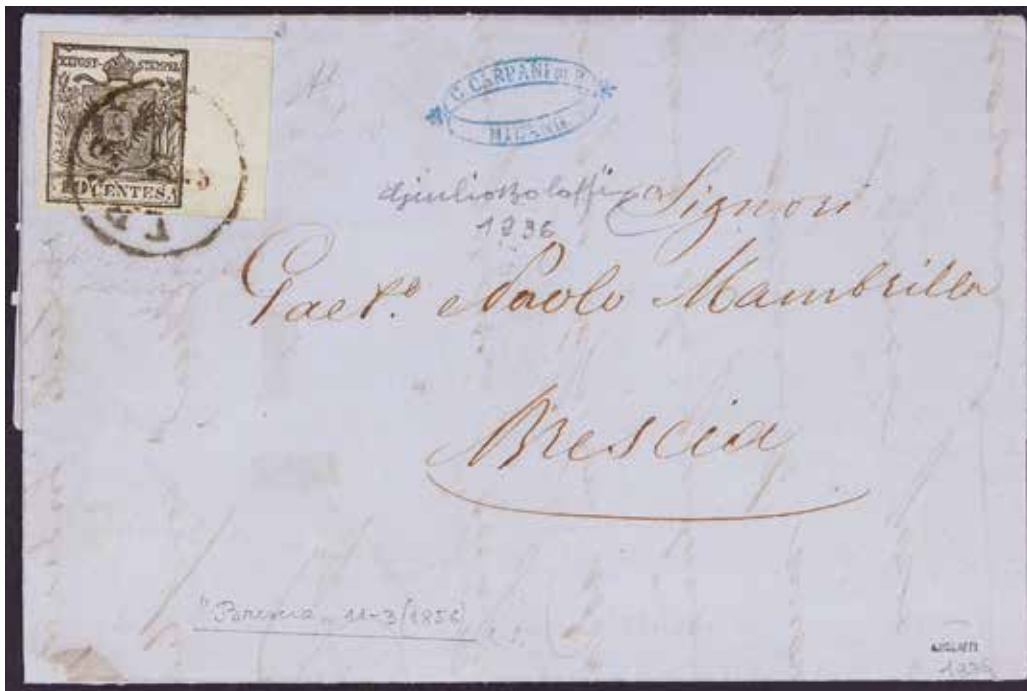 K.K.POST-STEMPEL
10 CENTES.
C. CARPANI
MILANO
Giulio Bolaffi
1936
Signori
Gaet.º e Paolo Mambrilla
Brescia
"Brescia„ 11-3(1856)